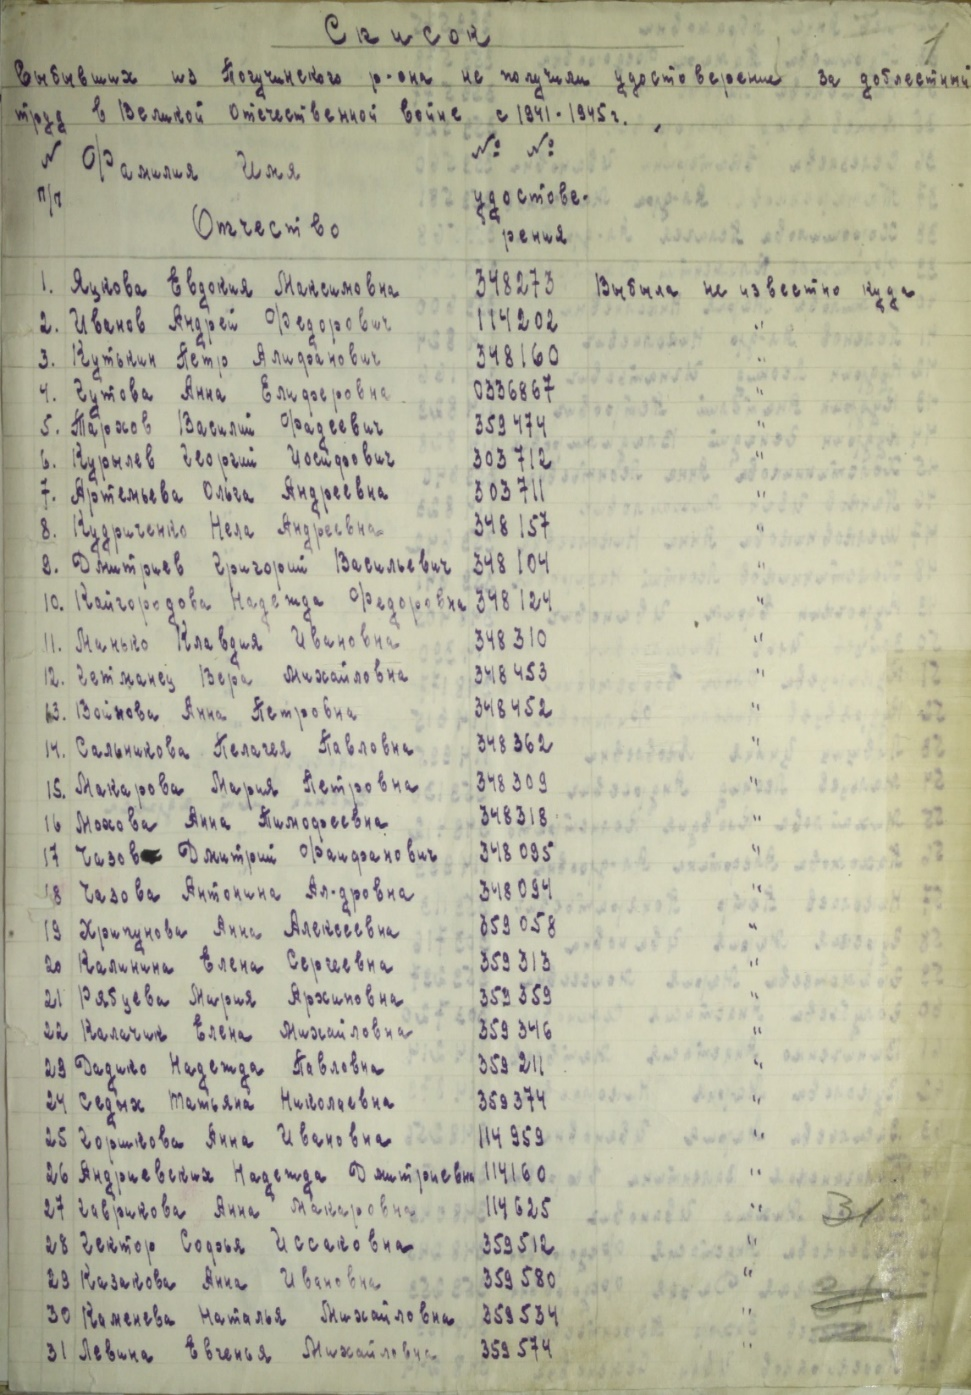 1
Список
Выбывших из Тогучинского р-она не получили удостоверение за доблестный
труд в Великой Отечественной войне с 1941-1945г.
N Фамилия Имя №: №:
п/п удостове-
Отчество рения
1. Яцкова Евдокия Максимовна 348273 Выбыла не известно куда
2. Иванов Андрей Федорович 114202 "
3. Кутькин Петр Алифанович 348160 "
4. Гутова Анна Елиферовна 0336867 "
5. Тархов Василий Фадеевич 359474 "
6. Курылев Георгий Иосифович 303712 "
7. Артемьева Ольга Андреевна 303711 "
8. Кудриченко Нела Андреевна 348157 "
9. Дмитриев Григорий Васильевич 348104 "
10. Кайгородова Надежда Федоровна 348124 "
11. Манько Клавдия Ивановна 348310 "
12. Гетманец Вера Михайловна 348453 "
13. Войнова Анна Петровна 348452 "
14. Сальникова Пелагея Павловна 348362 "
15. Макарова Мария Петровна 348309 "
16 Мохова Анна Тимофеевна 348318 "
17 Чазов Дмитрий 348095 "
18 Чазова Антонина Ал-дровна 348094 "
19 Хричунова Анна Алексеевна 359058 "
20 Калинина Елена Сергеевна 359313 "
21 Рябцева Мария Архиповна 359359 "
22 Калачик Елена Михайловна 359346 "
23 Дадико Надежда Павловна 359211 "
24 Седых Татьяна Николаевна 359374 "
25 Горшкова Анна Ивановна 114959 "
26 Андриевских Надежда Дмитриевна 114160 "
27 Гаврикова Анна Макаровна 114625 " 31
28 Гектор Софья Иссаковна 359512 "
29 Казакова Анна Ивановна 359580 "
30 Каменева Наталья Михайловна 359534 "
31 Левина Евгенья Михайловна 359574 "